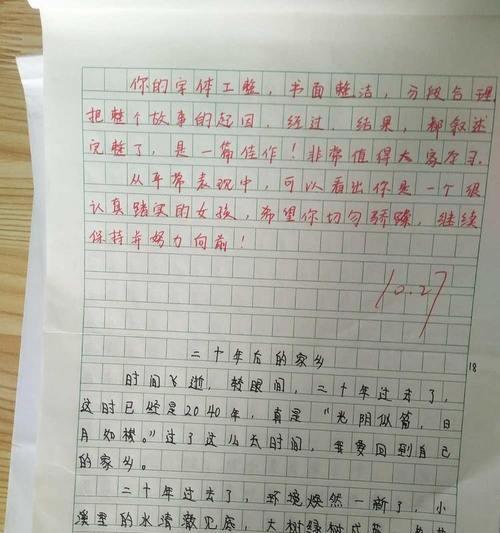 你的字体工整，书面整洁，分段合理
把整个故事的起因，经过，结果，都叙述
完整了，是一篇佳作！非常值得大家学习.
从平常表现中，可以看出你是一个很
认真踏实的女孩，希望你切勿骄躁，继续
保持并努力向前！
10.27
二十年后的家乡
18
时间飞逝，转眼间，二十年过去了，
这时已经是2040年，真是“光阴似箭，日
月如梭。”过了这么太时间，我要回到自己
的家乡。
二十年过去了，环境焕然一新了，小
溪里的水清澈见底，大树绿树成荫